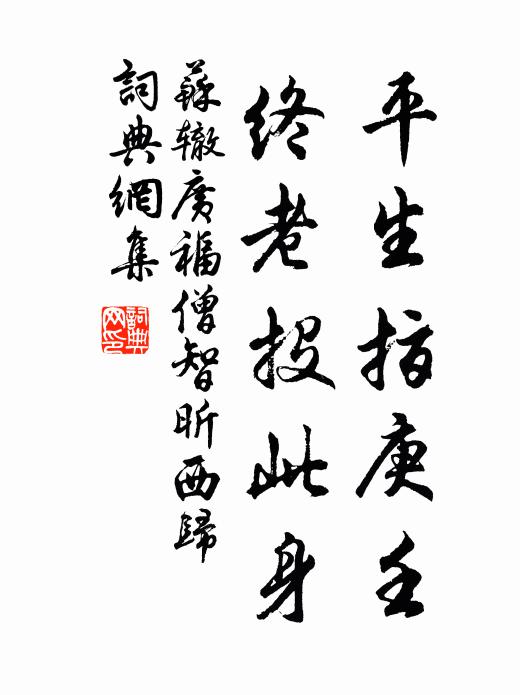 平生指庚壬
終老投此身
蘇轍廣福僧智昕西歸
詞典網集
詞典網印